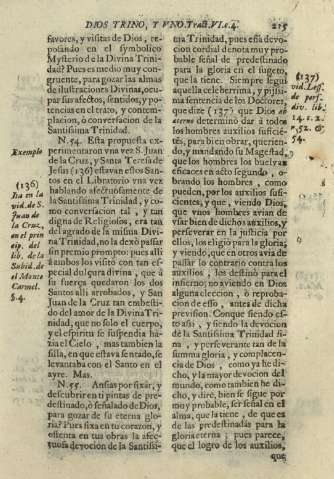 DIOS TRINO, Y VNO. Tract. VI. c. 4. 215
favores, y visitas de Dios, re-
posando en el symbolico
Mysterio de la Divina Trini-
dad? Pues es medio muy con-
gruente, para gozar las almas
de ilustraciones Divinas, ocu-
par sus afectos, sentidos, y po-
tencias en el trato, y contem-
placion, ò conversacion de la
Santissima Trinidad.
N. 54. Esta propuesta ex-
perimentaron vna vez S. Juan
de la Cruz, y Santa Teresa de
Jesus (136) estavan estos San-
tos en el Libratorio vna vez
hablando afectuosamente de
la Santissima Trinidad, y co-
mo conversacion tal, y tan
digna de Religiosos, era tan
del agrado de la misma Divi-
na Trinidad, no la dexò passar
sin premio prompto: pues alli
à ambos los visitò con tan es-
pecial dulçura divina, que à
su fuerça quedaron los dos
Santos alli arrobados, y San
Juan de la Cruz tan embesti-
do del amor de la Divina Tri-
nidad, que no solo el cuerpo,
y el espiritu se suspendia ha-
zia el Cielo, mas tambien la
silla, en que estava sentado, se
levantaba con el Santo en el
ayre. Mas.
N. 55. Ansias por fixar, y
descubrir en ti pintas de pre-
destinado, ò señalado de Dios,
para gozar de su eterna glo-
ria? Pues fixa en tu corazon, y
ostenta en tus obras la afec-
tuosa devocion de la Santissi-
Exemplo
(136)
Ita en la
vid. de S.
Juan de
la Cruz,
en el prin
cip. del
lib. de la
Subid. de
el Monte
Carmel.
§. 4.
ma Trinidad, pues essa devo-
cion cordial denota muy pro-
bable señal de predestinado
para la gloria en el sugeto,
que la tiene. Siempre seguì
aquella celeberrima, y pijssi-
ma sentencia de los Doctores,
que dize (137) que Dios ab
aeterno determinò dar à todos
los hombres auxilios suficiẽ-
tes, para bien obrar, querien-
do, y mandando su Magestad,
que los hombres los buelvan
eficaces en acto segundo, o-
brando los hombres, como
pueden, por los auxilios sufi-
cientes, y que, viendo Dios,
que vnos hombres avian de
vsar bien de dichos auxilios, y
perseverar en la justicia por
ellos, los eligiò para la gloria;
y viendo, que en otros avia de
passar lo contrario contra los
auxilios, los destinò para el
infierno; no aviendo en Dios
alguna eleccion, ò reproba-
cion de esso, antes de dicha
prevision. Conque siendo es-
to assi, y siendo la devocion
de la Santissima Trinidad si-
na, y perseverante tan de la
summa gloria, y complacen-
cia de Dios, como ya he di-
cho, y la mayor devocion del
mundo, como tambien he di-
cho, y dirè, bien se sigue por
muy probable, ser señal en el
alma, que la tiene, de que es
de las predestinadas para la
gloria eterna; pues parece,
que el logro de los auxilios,
que
(137)
vid. Les.
de perf.
div. lib.
14. c. 2.
54.